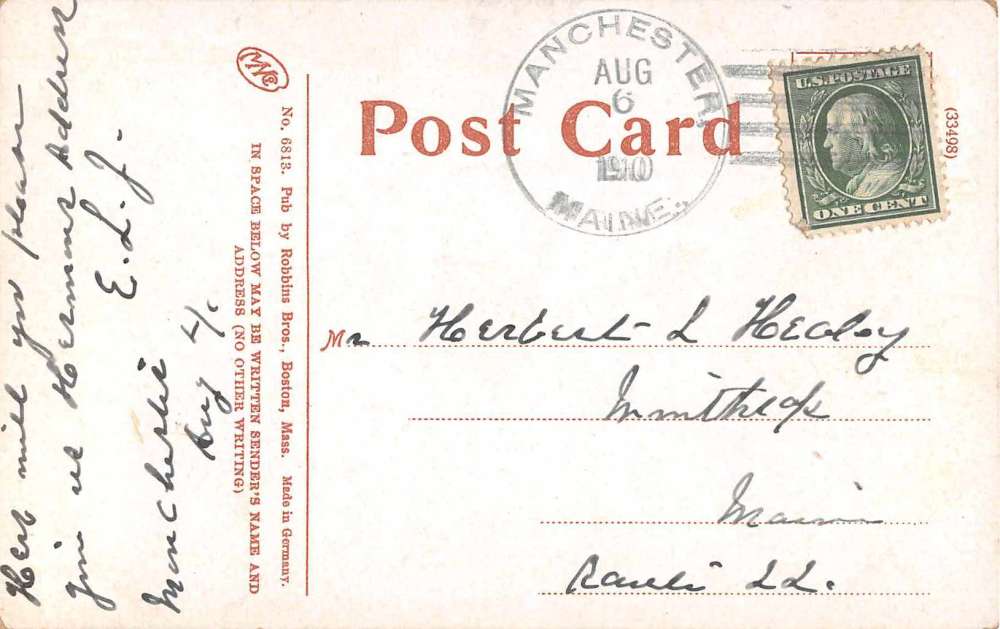 Post Card
MANCHESTER,
AUG
6
1910
MAINE.
U.S. POSTAGE
ONE CENT
(33498)
MNCo
No. 6813. Pub by Robbins Bros., Boston, Mass. Made in Germany.
IN SPACE BELOW MAY BE WRITTEN SENDER'S NAME AND
ADDRESS (NO OTHER WRITING)
Herb will you please
give us Hermans Address
E. L. J.
Manchester
Aug 4/
Mr Herbert L Healey
Maine